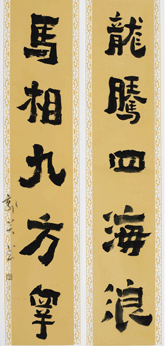 龍騰四海浪
馬相九方皋